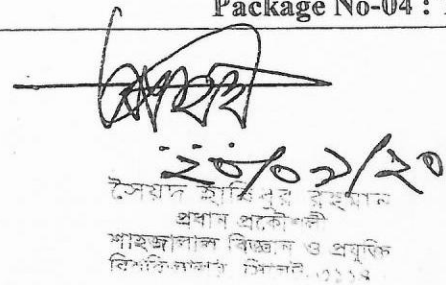 Package No-04 :
২০/০১/২০
সৈয়দ হাবিবুর রহমান
প্রধান প্রকৌশলী
শাহজালাল বিজ্ঞান ও প্রযুক্তি
বিশ্ববিদ্যালয় সিলেট